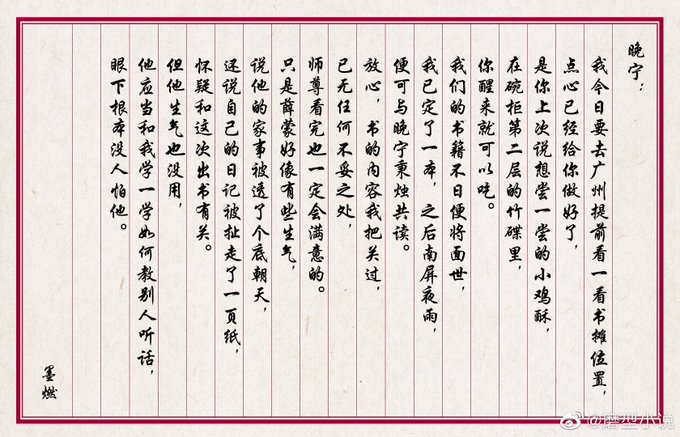 晚宁：
我今日要去广州提前看一看书摊位置，
点心已经给你做好了，
是你上次说想尝一尝的小鸡酥，
在碗柜第二层的竹碟里，
你醒来就可以吃。
我们的书籍不日便将面世，
我已定了一本，之后南屏夜雨，
便可与晚宁秉烛共读。
放心，书的内容我把关过，
已无任何不妥之处，
师尊看完也一定会满意的。
只是薛蒙好像有些生气，
说他的家事被透了个底朝天，
还说自己的日记被扯走了一页纸，
怀疑和这次出书有关。
但他生气也没用，
他应当和我学一学如何教别人听话，
眼下根本没人怕他。
墨燃
@磨型小说